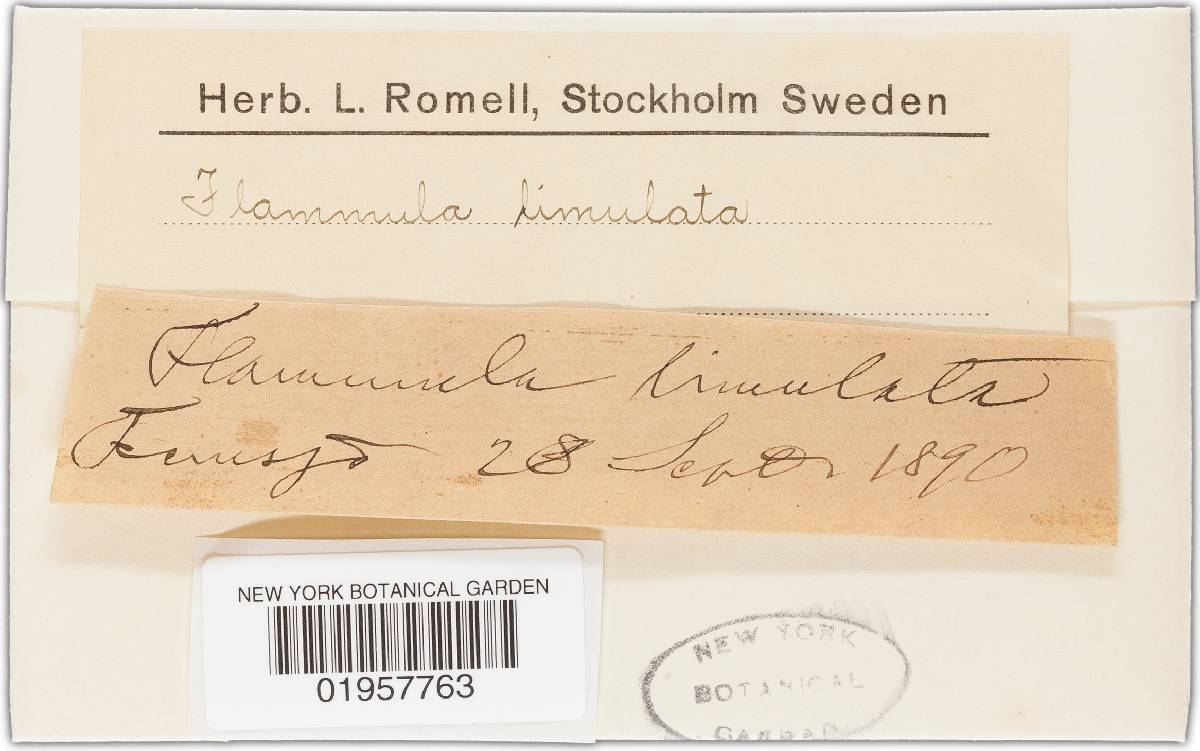 Herb. L. Romell, Stockholm Sweden
Flammula limulata
Flammula limulata
Femsjö 28 Septr 1890
NEW YORK BOTANICAL GARDEN
01957763
NEW YORK
BOTANICAL
GARDEN